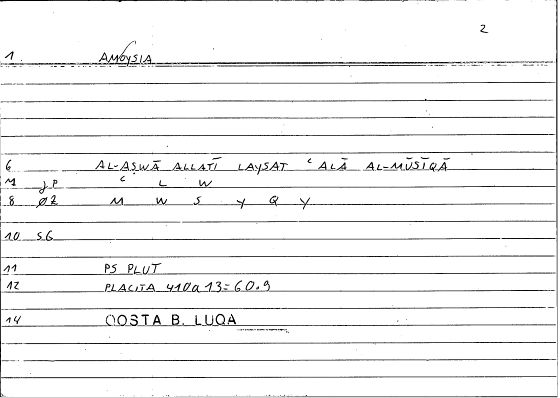 2
1 AMOYSIA
6 AL-AṢWĀ ALLATĪ LAYSAT ʿALĀ AL-MŪSĪQĀ
M jP ʿ L W
8 ø2 M W S Y Q Y
10 SG
11 PS PLUT
12 PLACITA 410a13=60.9
14 QOSTA B. LUQA